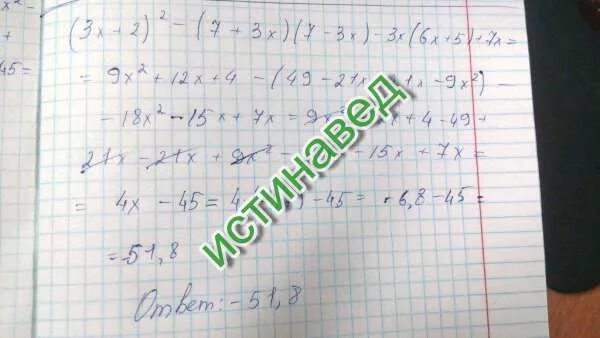 x² -
+
45 =
(3x + 2)² - (7 + 3x)(7 - 3x) - 3x(6x + 5) + 7x =
= 9x² + 12x + 4 - (49 - 21x 1x - 9x²) -
- 18x² - 15x + 7x = 9x² x + 4 - 49 +
21x - 21x + 9x² - - 15x + 7x =
= 4x - 45 = 4 - 45 = - 6,8 - 45 =
= - 51,8
Ответ: - 51,8
истинавед